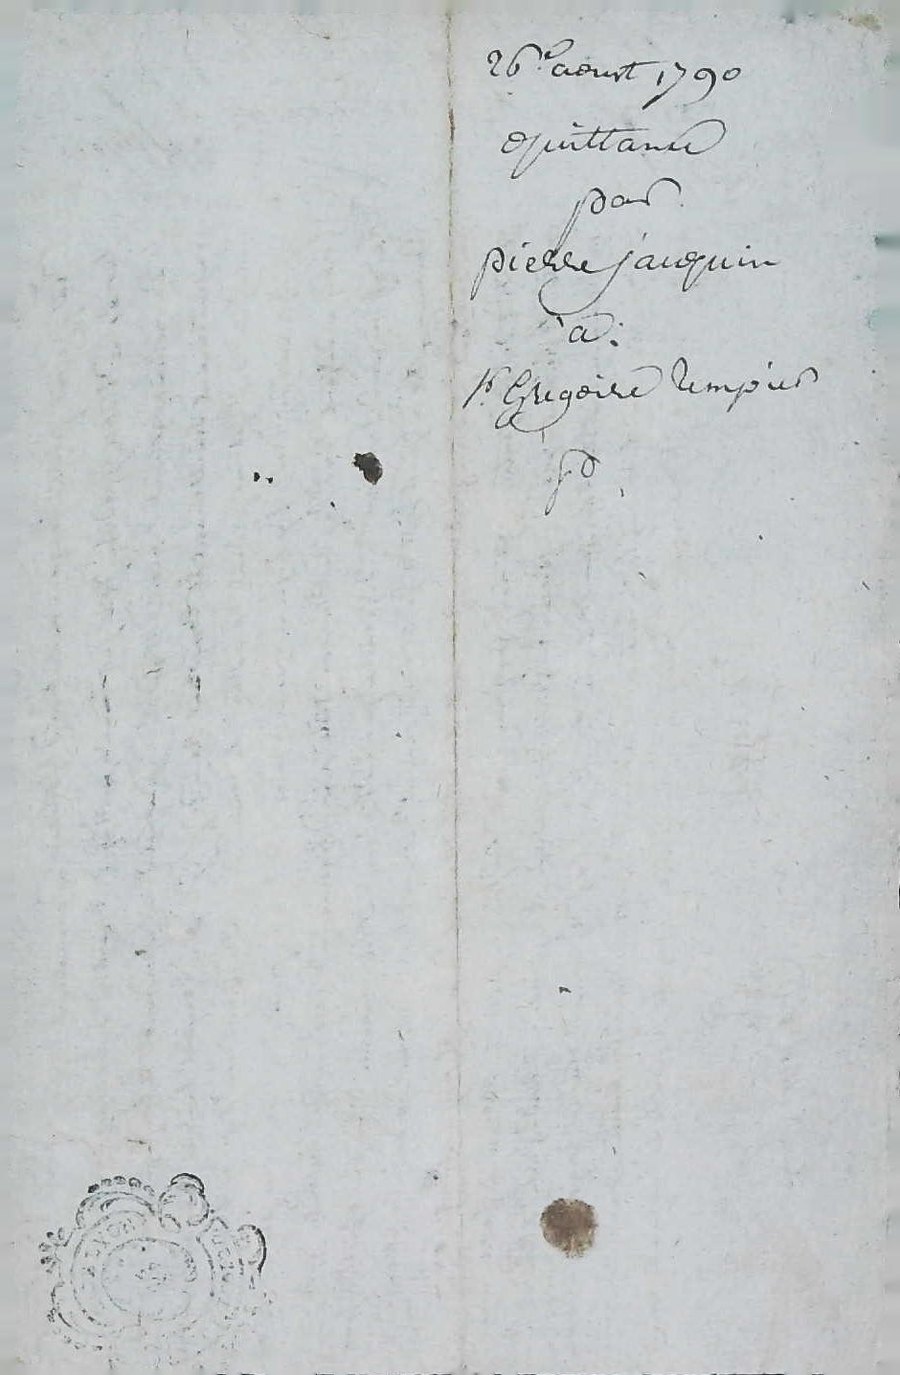 26e. aoust 1790
quittance
par
pierre jacquin
à
Sr. Gregoire Tempier